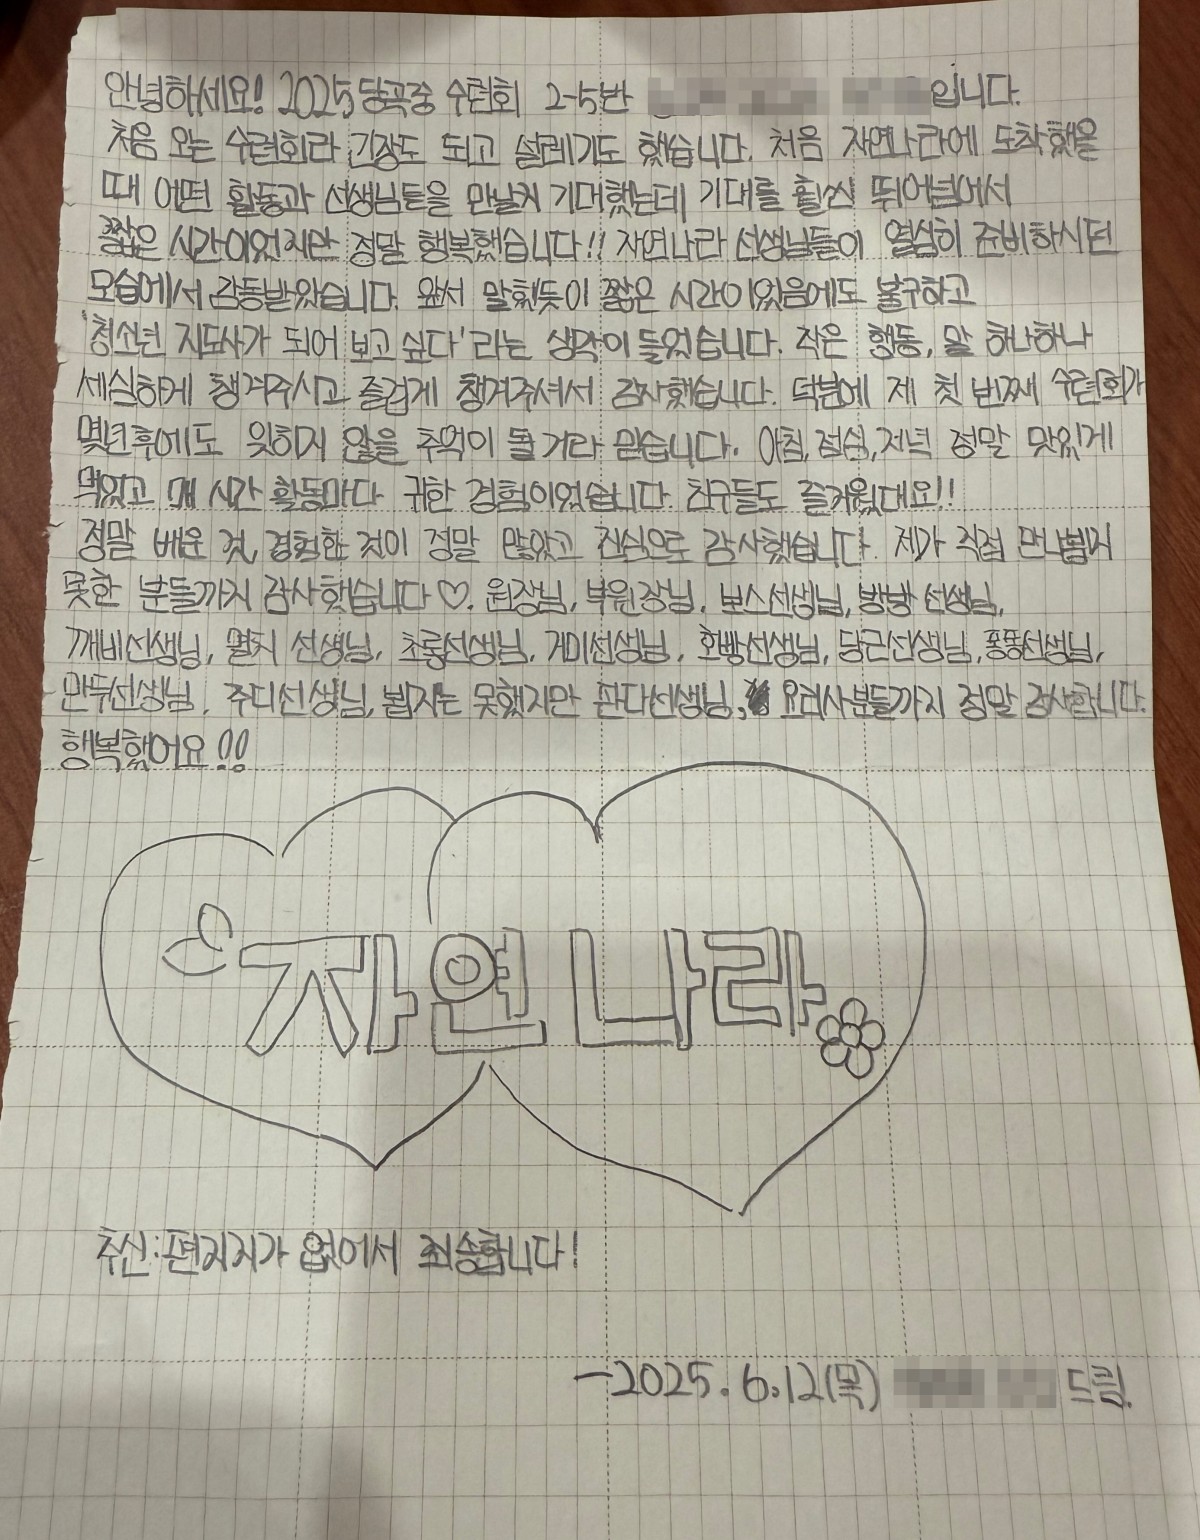 안녕하세요! 2025 당곡중 수련회 2-5반 입니다.
처음 오는 수련회라 긴장도 되고 설레기도 했습니다. 처음 자연나라에 도착했을
때 어떤 활동과 선생님들을 만날지 기대했는데 기대를 훨씬 뛰어넘어서
짧은 시간이었지만 정말 행복했습니다!! 자연나라 선생님들이 열심히 준비하시던
모습에서 감동받았습니다. 앞서 말했듯이 짧은 시간이었음에도 불구하고
'청소년 지도사가 되어 보고 싶다'라는 생각이 들었습니다. 작은 행동, 말 하나하나
세심하게 챙겨주시고 즐겁게 챙겨주셔서 감사했습니다. 덕분에 제 첫 번째 수련회가
몇년후에도 잊히지 않을 추억이 될 거라 믿습니다. 아침, 점심, 저녁 정말 맛있게
먹었고 매 시간 활동마다 귀한 경험이었습니다. 친구들도 즐거웠대요!!
정말 배운 것, 경험한 것이 정말 많았고 진심으로 감사했습니다. 제가 직접 만나뵙지
못한 분들까지 감사했습니다♡. 원장님, 부원장님, 보스선생님, 방방 선생님,
깨비선생님, 멸치 선생님, 초롱선생님, 개미선생님, 호빵선생님, 당근선생님, 퐁퐁선생님,
만두선생님, 주디선생님, 뵙지는 못했지만 판다선생님, 요리사분들까지 정말 감사합니다.
행복했어요!!
자연나라
추신: 편지지가 없어서 죄송합니다!
-2025.6.12(목) 드림.